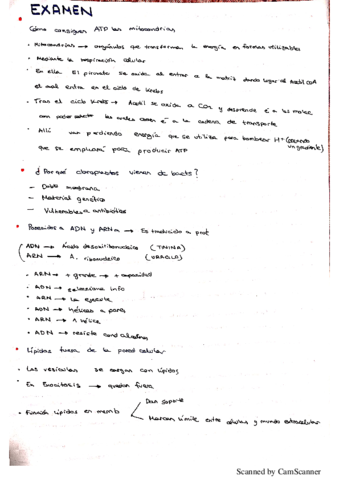 EXAMEN
Cómo consiguen ATP las mitocondrias
• Mitocondrias → orgánulos que transforman la energía en formas utilizables
• Mediante la respiración celular
• En ella El piruvato se oxida al entrar a la matriz dando lugar al Acetil CoA
el cual entra en el ciclo de Krebs
• Tras el ciclo Krebs → Acetil se oxida a CO2 y desprende é a las molec
con poder los ceden a la cadena de transporte
• Allí van perdiendo energía que se utiliza para bombear H+
que se empleará para producir ATP
• ¿Por qué cloroplastos vienen de bacts?
– Doble membrana
– Material genético
– Vulnerables a antibióticos
• Parecidos a ADN y ARNm → Es traducción a prot
ADN → Ácido desoxirribonucleico (TIMINA)
ARN → A. ribonucleico (URACILO)
• ARN → + grande → + capacidad
• ADN → selecciona info
• ARN → La ejecuta
• ADN → hélices a pares
• ARN → 1 hélice
• ADN →
• Lípidos fuera de la pared celular
• Las vesículas se cargan con lípidos
• En Exocitosis → quedan fuera
• Función lípidos en memb
Dan soporte
Marcan límite entre células y mundo extracelular
Scanned by CamScanner